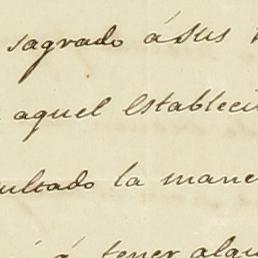 sagrado á sus
aquel estableci
ultado la mane
á tener algu